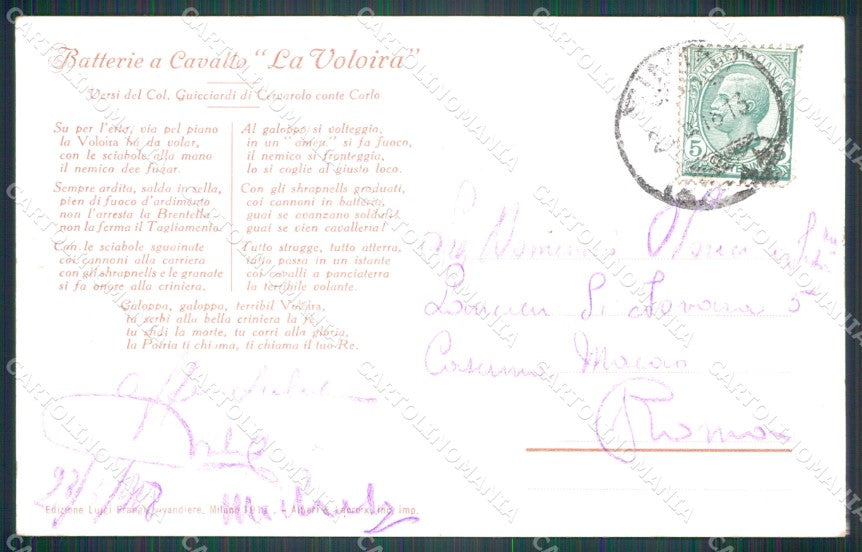 Batterie a Cavallo "La Voloira"
Versi del Col. Guicciardi di Cervarolo conte Carlo
Su per l'erto, via pel piano
la Voloira ha da volar,
con le sciabole alla mano
il nemico dee fugar.
Sempre ardita, salda in sella,
pien di fuoco d'ardimento
non l'arresta la Brentella
non la ferma il Tagliamento.
Con le sciabole sguainate
coi cannoni alla carriera
con gli shrapnells e le granate
si fa onore alla criniera.
Al galoppo si volteggia,
in un "amen" si fa fuoco,
il nemico si fronteggia,
lo si coglie al giusto loco.
Con gli shrapnells graduati,
coi cannoni in batteria,
guai se avanzano soldati
guai se vien cavalleria!
Tutto strugge, tutto atterra,
tutto passa in un istante
coi cavalli a panciaterra
la terribile volante.
Galoppa, galoppa, terribil Voloira,
tu serbi alla bella criniera la fè,
tu sfidi la morte, tu corri alla gloria,
la Patria ti chiama, ti chiama il tuo Re.
5
Domenico
Lancieri di Novara 5°
Caserma Macao
Roma
Edizione Luigi Vivandiere, Milano - Alfieri & Lacroix, imp.
CARTOLINOMANIA